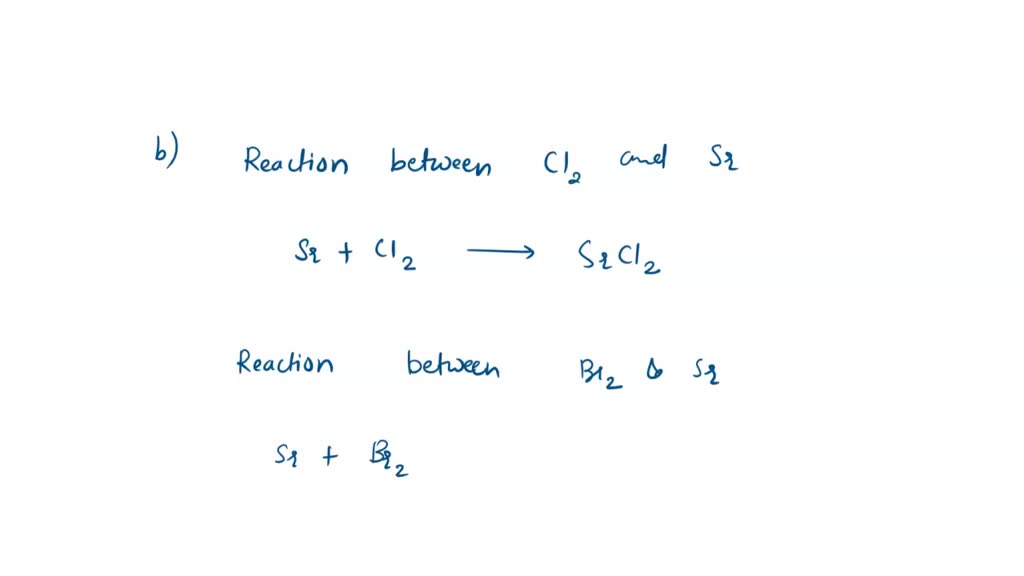 b) Reaction between Cl₂ and Sr
Sr + Cl₂ → SrCl₂
Reaction between Br₂ & Sr
Sr + Br₂